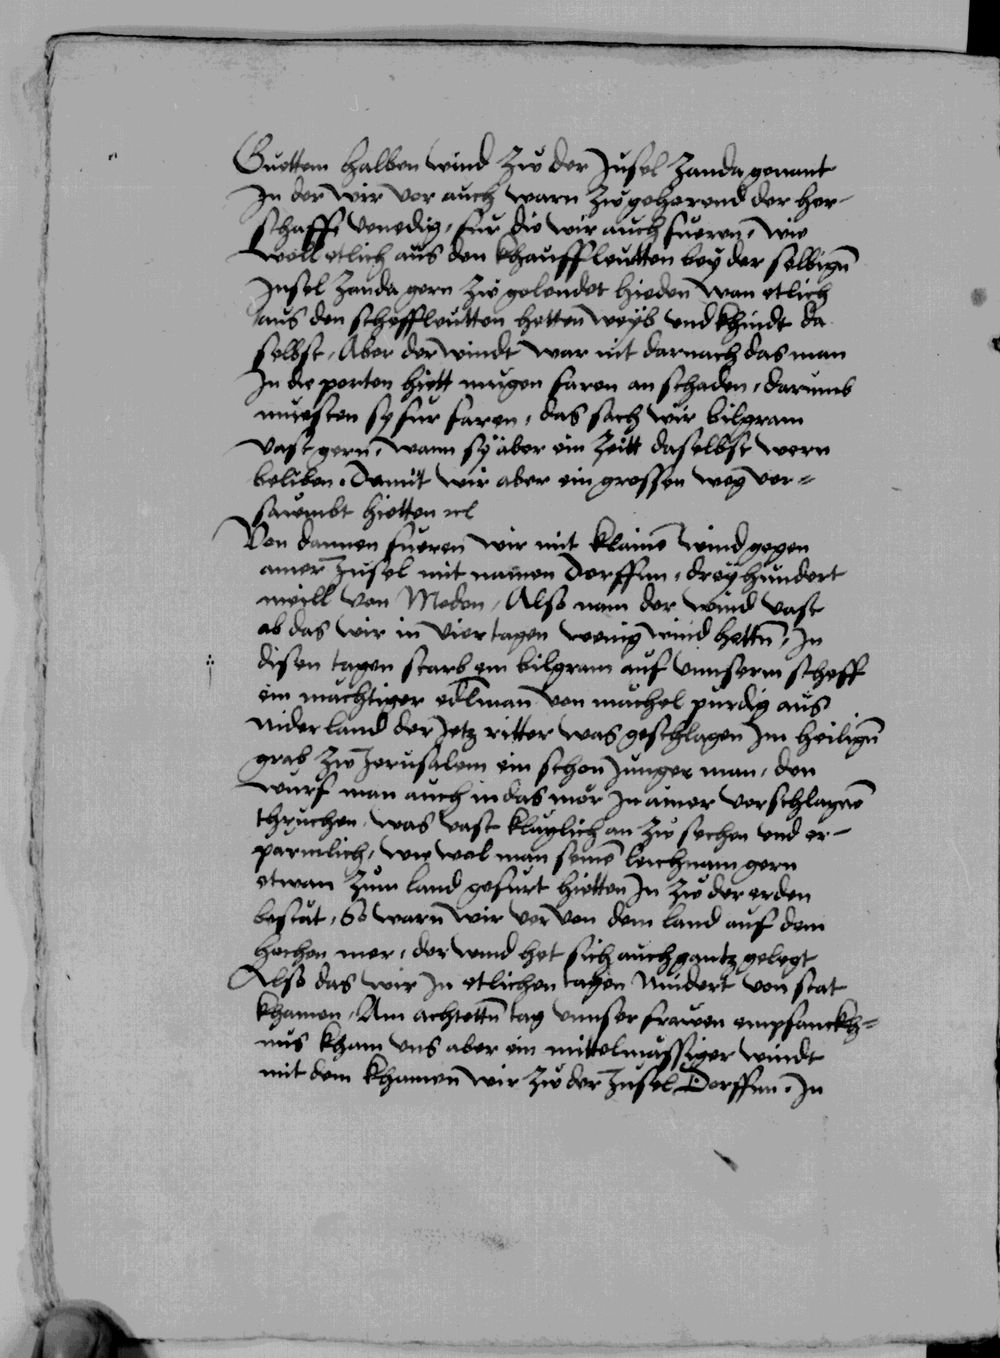 Guettem halben wind zw der Jnsel Zanda genant
Jn der wir vor auch warn zwgeherend der her-
schafft venedig, fur die wir auch fueren, wie
woll etlich aus den khauffleutten bey der selbign̄
Jnsel Zanda gern zw gelendet hieden wan etlich
aus den scheffleutten hetten weyb vnd khindt da
selbst, Aber der windt war nit darnach das man
Jn die porten hiett mugen faren an schaden, darumb
muesten sy fur faren, das sach wir bilgram
vast gern, wann sy aber ein Zeitt daselbst wern
beliben. Damit wir aber ein grossen weg ver=
saumbt hietten
Von dannen fueren wir mit klainē wind gegen
ainer Jnsel mit namen Dorffun, dreyhundert
meill von Modon, Also nam der wind vast
ab das wir in vier tagen wenig wind hettn̄, Jn
disen tagen starb ein bilgram auf vnnserm scheff
ein machtiger edlman von machel purdig aus
niderland der Jetz ritter was geschlagen Jm heilign̄
grab zw Jerusalem ein schon Junger man, den
wurf man auch in das mör Jn ainer verschlagnē
thruchen, was vast klaglich an zw sechen vnd er-
parmlich, wie wol man seinē leichnam gern
etwan zum land gefurt hietten Jn zw der erden
bestät, So warn wir ver von dem land auf dem
hochen mer, der wind het sich auch gantz gelegt
Also das wir Jn etlichen tagen nindert von stat
khamen, Am achtettn̄ tag vnnser frawen empfanckh=
nus kham vns aber ein mittelmässiger windt
mit dem khamen wir zw der Jnsel Dorffun, Jn